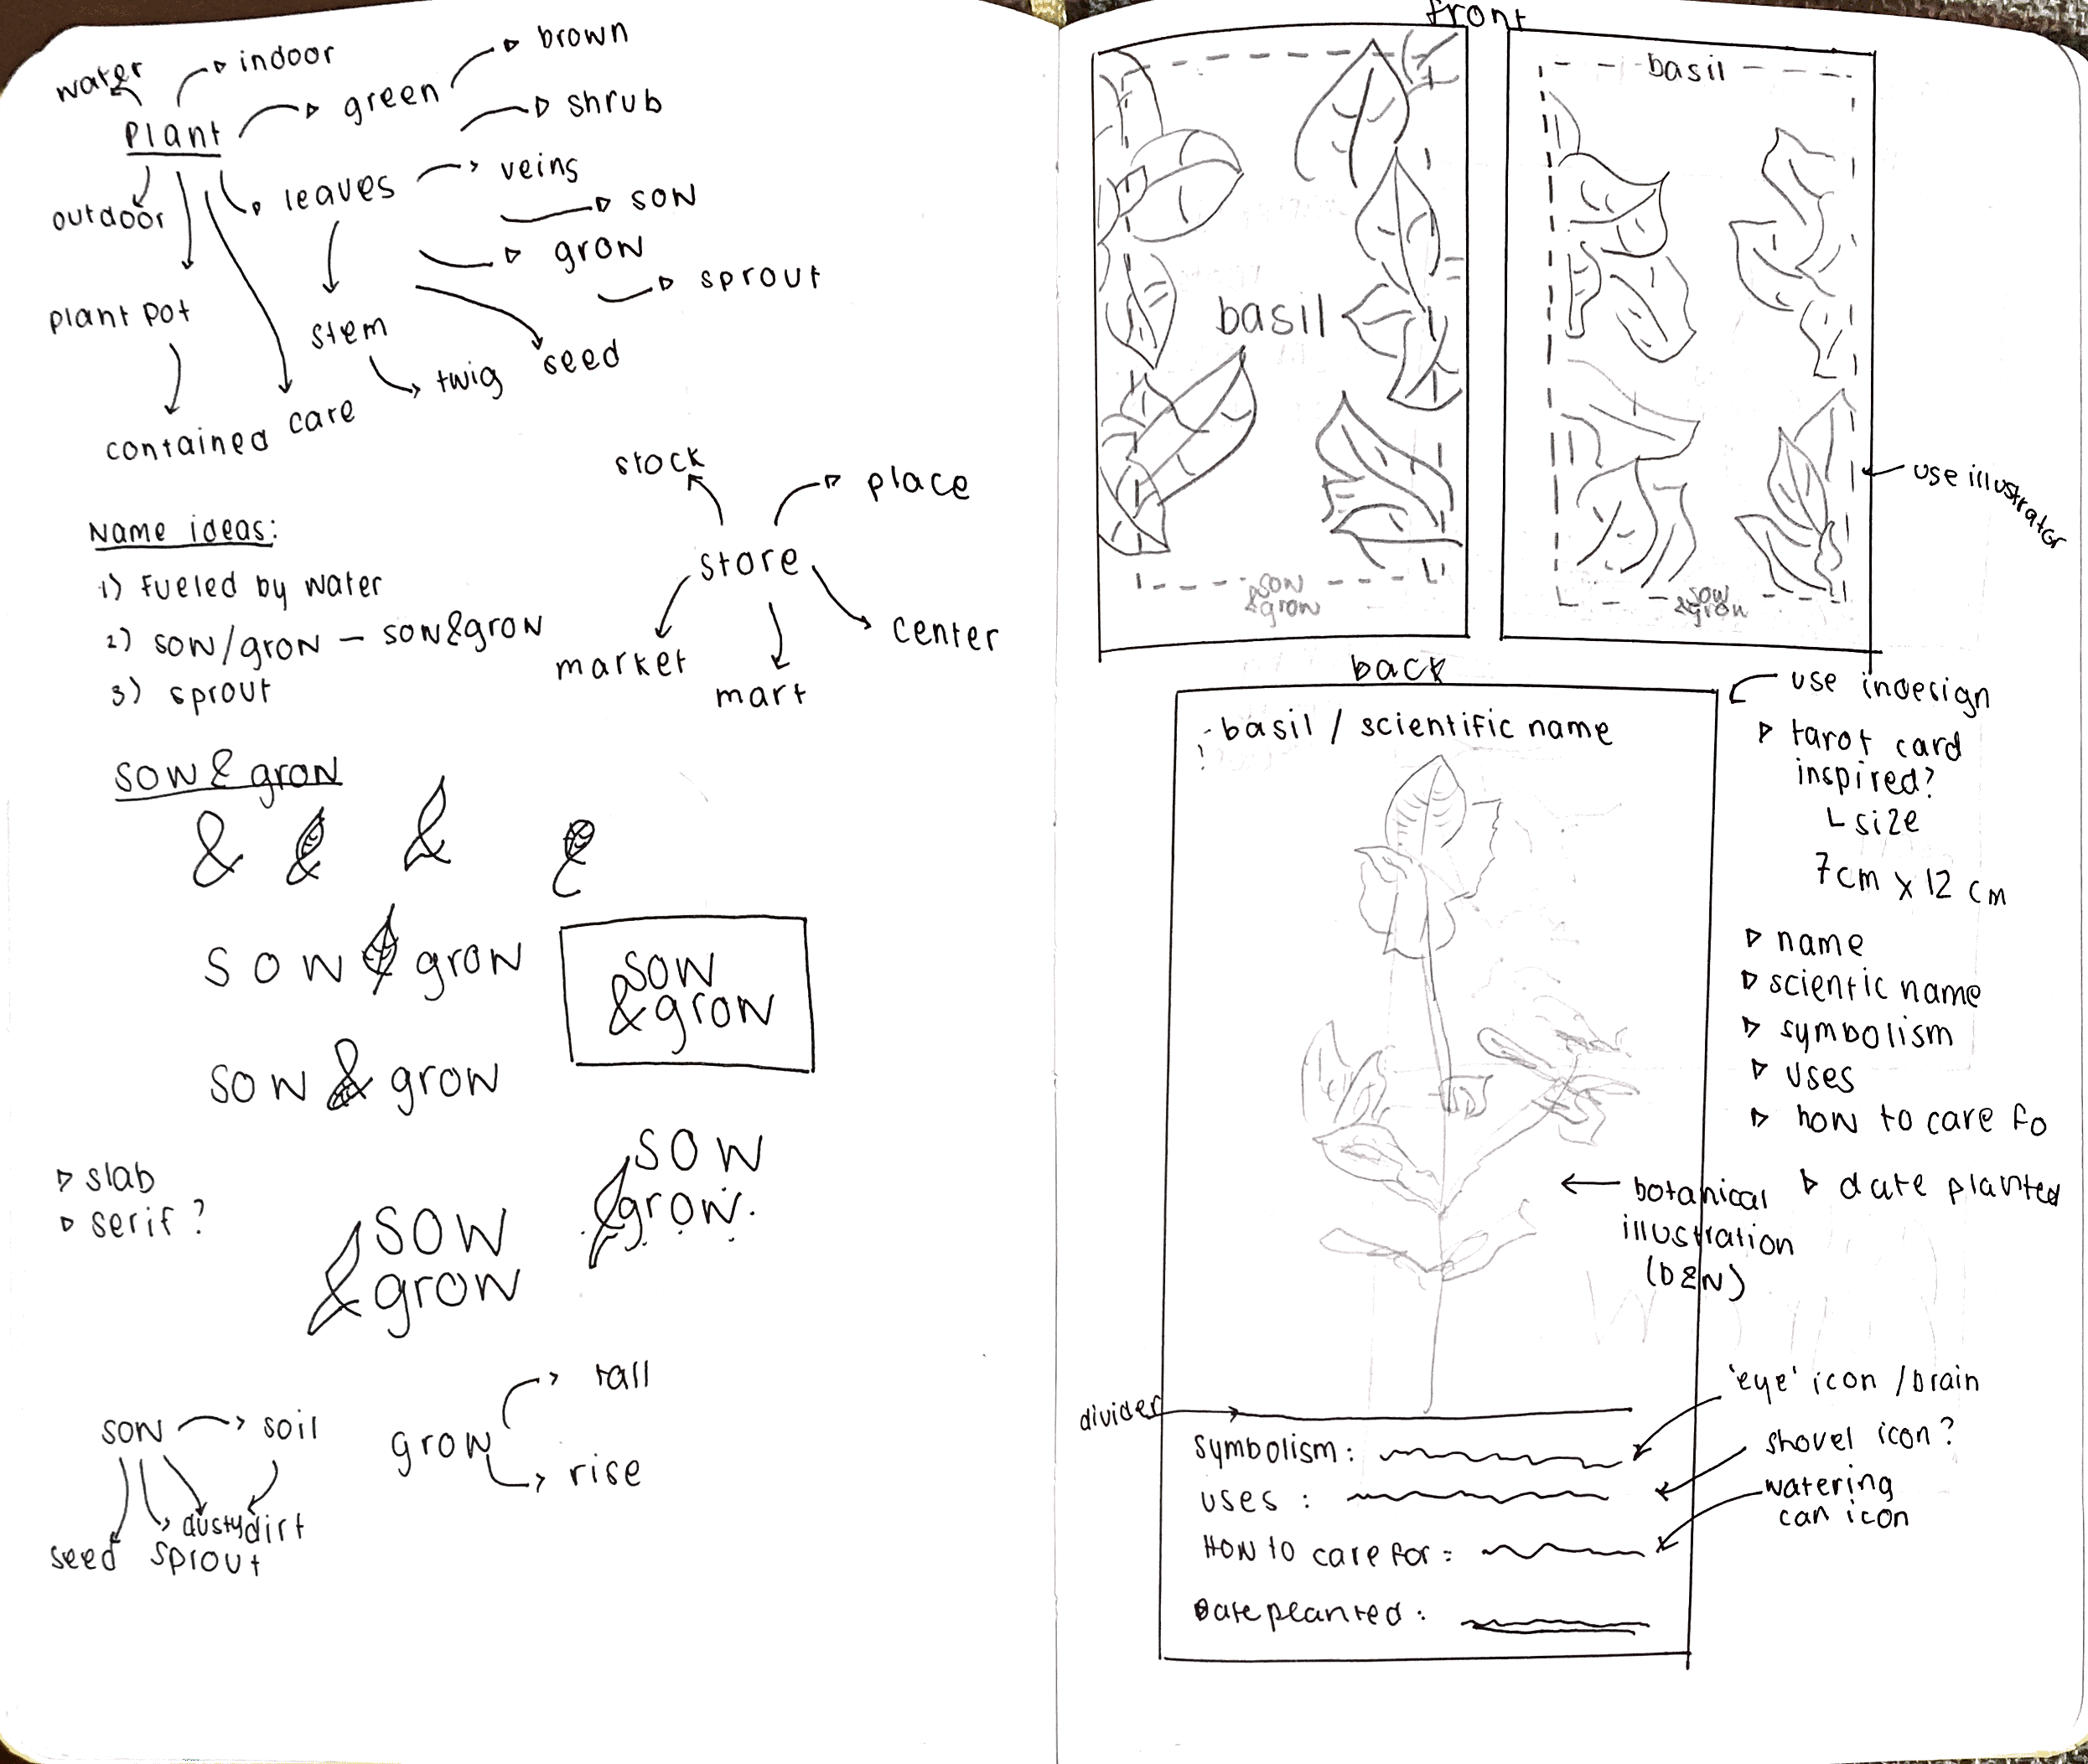 water
indoor
brown
Plant
green
shrub
outdoor
leaves
veins
sow
grow
sprout
plant pot
stem
twig
seed
contained
care
stock
place
store
market
mart
center
Name ideas:
1) Fueled by water
2) sow/grow – sow&grow
3) sprout
sow & grow
& & & &
sow & grow
sow
&grow
sow & grow
▷ slab
▷ serif?
sow
&grow
sow
&grow.
sow
soil
seed
sprout
dusty
dirt
grow
tall
rise
front
basil
sow
&grow
basil
sow
&grow
use illustrator
back
basil / scientific name
use indesign
▷ tarot card
inspired?
└ size
7cm x 12 cm
▷ name
▷ scientic name
▷ symbolism
▷ uses
▷ how to care fo
▷ date planted
botanical
illustration
(b&w)
divider
symbolism:
uses :
How to care for:
Date planted :
'eye' icon / brain
shovel icon?
watering
can icon